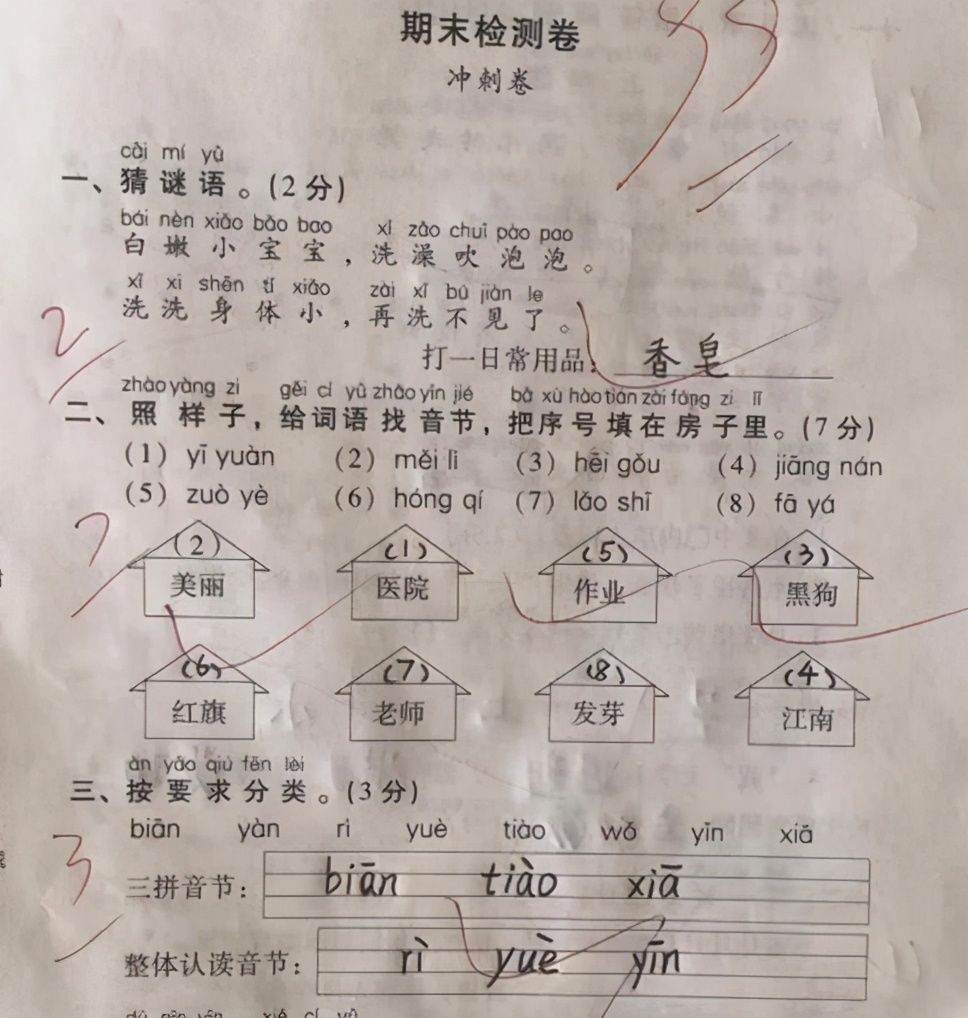 期末检测卷
冲刺卷
cāi mí yǔ
一、猜谜语。(2分)
bái nèn xiǎo bǎo bao xǐ zǎo chuī pào pao
白嫩小宝宝，洗澡吹泡泡。
xǐ xi shēn tǐ xiǎo zài xǐ bú jiàn le
洗洗身体小，再洗不见了。
2
打一日常用品：香皂
zhào yàng zi gěi cí yǔ zhǎo yīn jié bǎ xù hào tián zài fáng zi lǐ
二、照样子，给词语找音节，把序号填在房子里。(7分)
(1) yī yuàn (2) měi lì (3) hēi gǒu (4) jiāng nán
(5) zuò yè (6) hóng qí (7) lǎo shī (8) fā yá
7
(2) (1) (5) (3)
美丽 医院 作业 黑狗
(6) (7) (8) (4)
红旗 老师 发芽 江南
àn yāo qiú fēn lèi
三、按要求分类。(3分)
biān yàn rì yuè tiào wǒ yīn xiā
3
三拼音节： biān tiào xiā
整体认读音节： rì yuè yīn